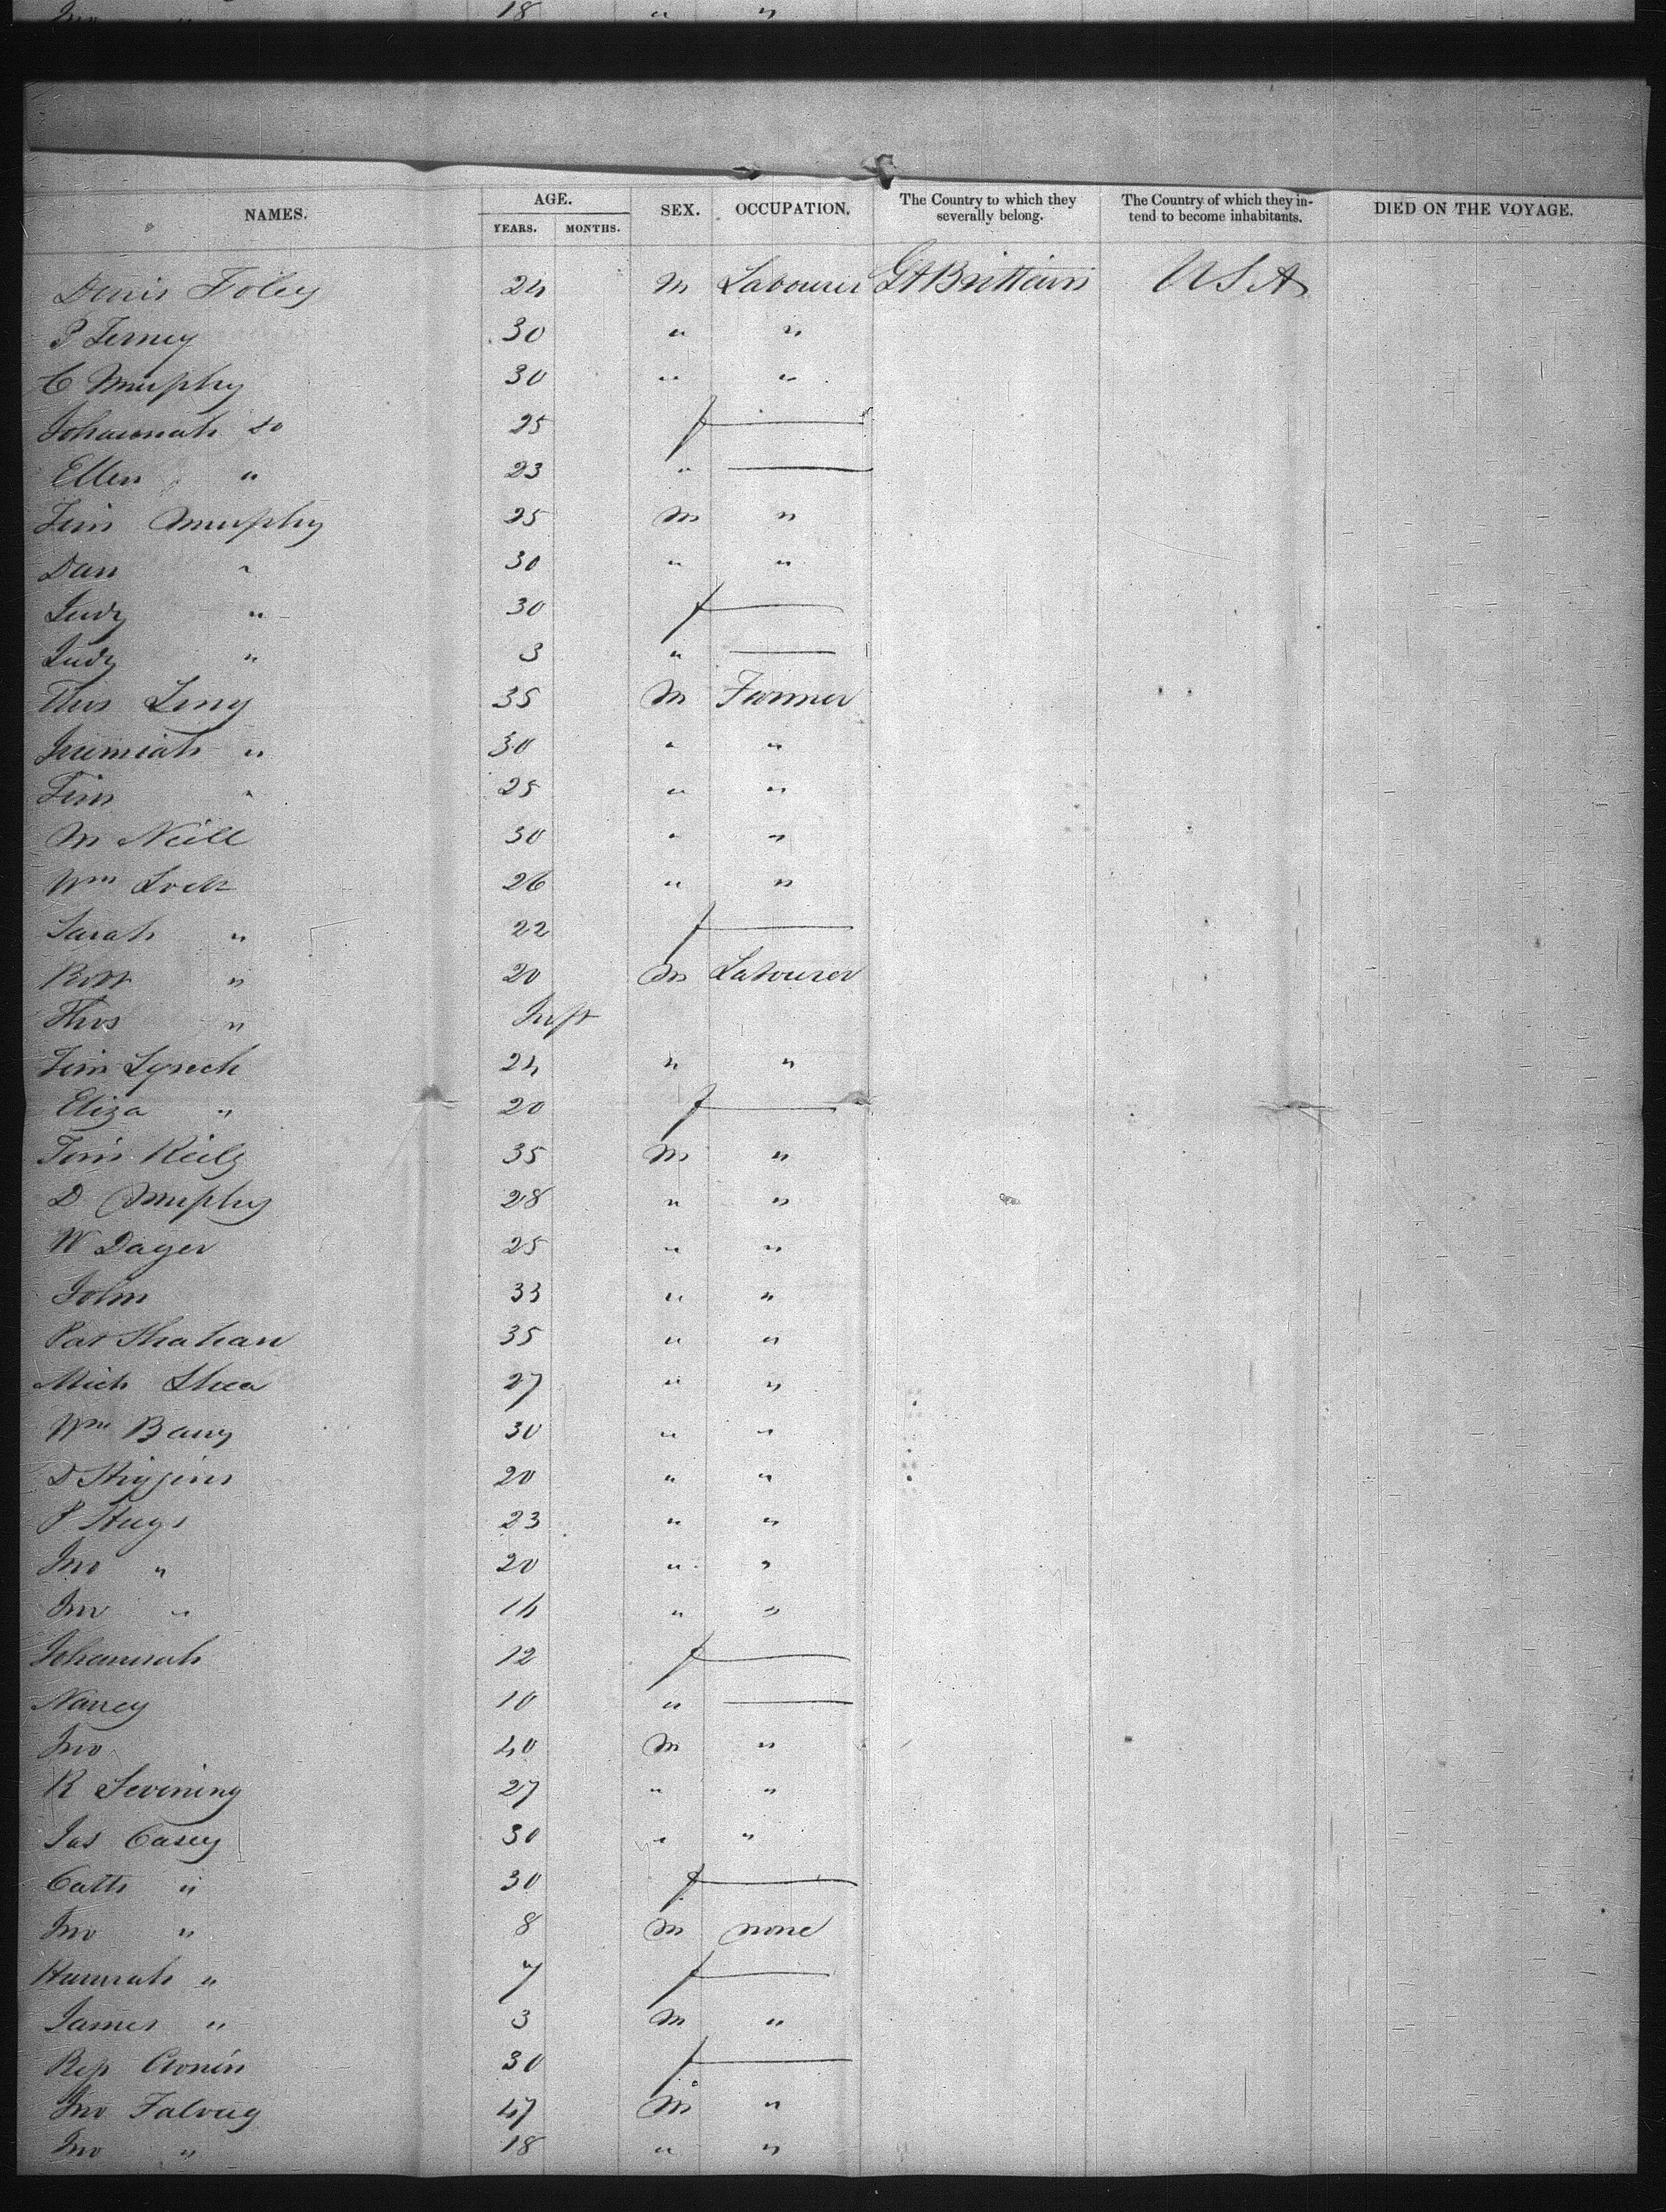 Jno " 18 " "
NAMES. AGE. YEARS. MONTHS. SEX. OCCUPATION. The Country to which they severally belong. The Country of which they in-tend to become inhabitants. DIED ON THE VOYAGE.
Denis Foley 24 M Labourer Gt Brittain USA
P 30 " "
C Murphy 30 " "
Johannah do 25 f
Ellen " 23 "
Tim Murphy 25 M "
Dan " 30 " "
Judy " 30 f
Judy " 3 "
Thos 35 M Farmer
Jeremiah " 30 " "
Tim " 25 " "
M Neill 30 " "
Wm 26 " "
Sarah " 22 f
Robt " 20 M Labourer
Thos " Inft
Tim Lynch 24 " "
Eliza " 20 f
Tim Reily 35 M "
D Murphy 28 " "
W Dayer 25 " "
John 33 " "
Pat Shahan 35 " "
Mich Shea 27 " "
Wm Barry 30 " "
D Higgins 20 " "
P Hays 23 " "
Jno " 20 " "
Jno " 14 " "
Johannah 12 f
Nancy 10 "
Jno 40 M "
R 27 " "
Jas Casey 30 " "
Cath " 30 f
Jno " 8 M none
Hannah " 7 f
James " 3 M "
Cronin 30 f
Jno Falvey 47 M "
Jno " 18 " "